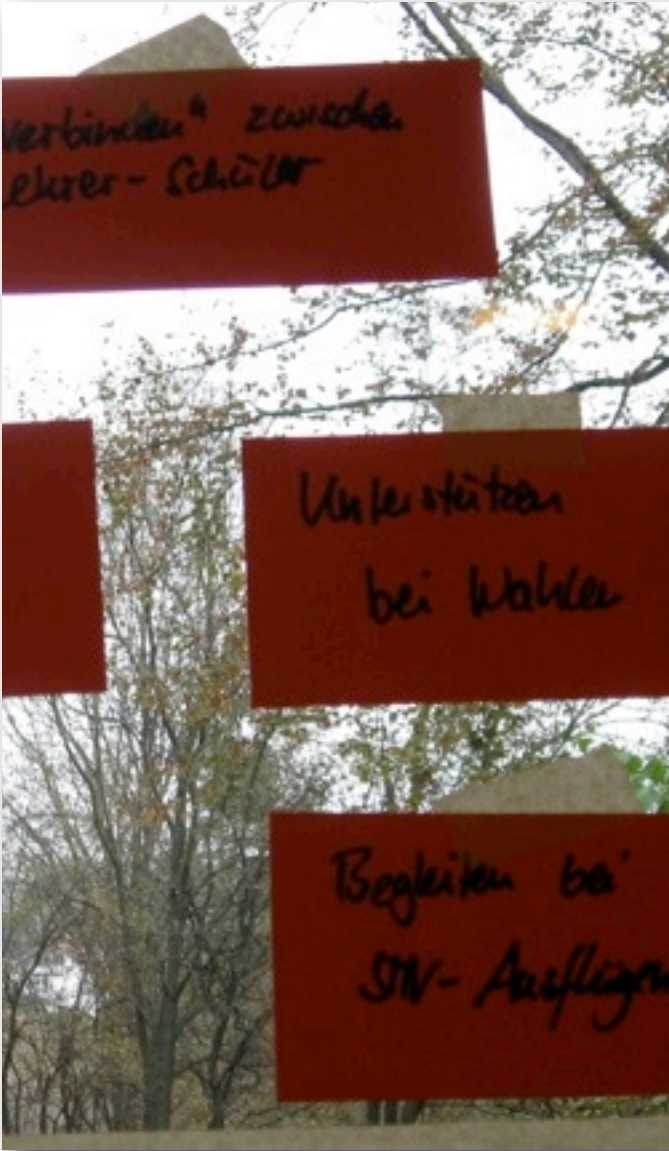 verbinden" zwischen
ehrer-Schüler
Unterstützen
bei Wahlen
Begleiten bei
SMV-Ausflügen